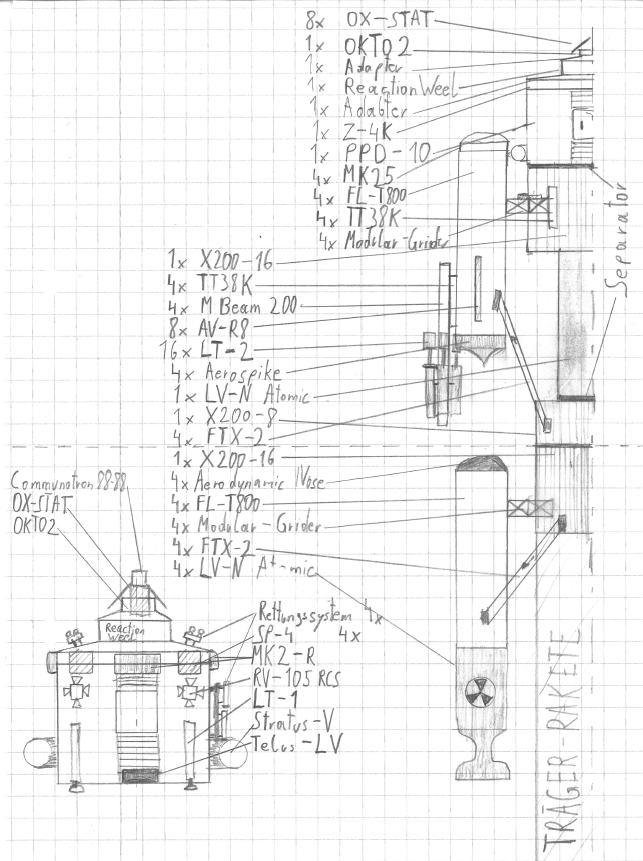 8x OX-STAT
1x OKTO2
1x Adapter
1x Reaction Weel
1x Adabter
1x Z-4K
1x PPD-10
4x MK25
4x FL-T800
4x TT38K
4x Modular-Grider
Separator
1x X200-16
4x TT38K
4x M Beam 200
8x AV-R8
16x LT-2
4x Aerospike
1x LV-N Atomic
1x X200-8
4x FTX-2
1x X200-16
4x Aerodynamic Nose
4x FL-T800
4x Modular-Grider
4x FTX-2
4x LV-N At-mic
Communotron 88-88
OX-STAT
OKTO2
Reaction
Weel
Rettungssystem 4x
SP-4 4x
MK2-R
RV-105 RCS
LT-1
Stratus-V
Telus-LV
TRÄGER-RAKETE